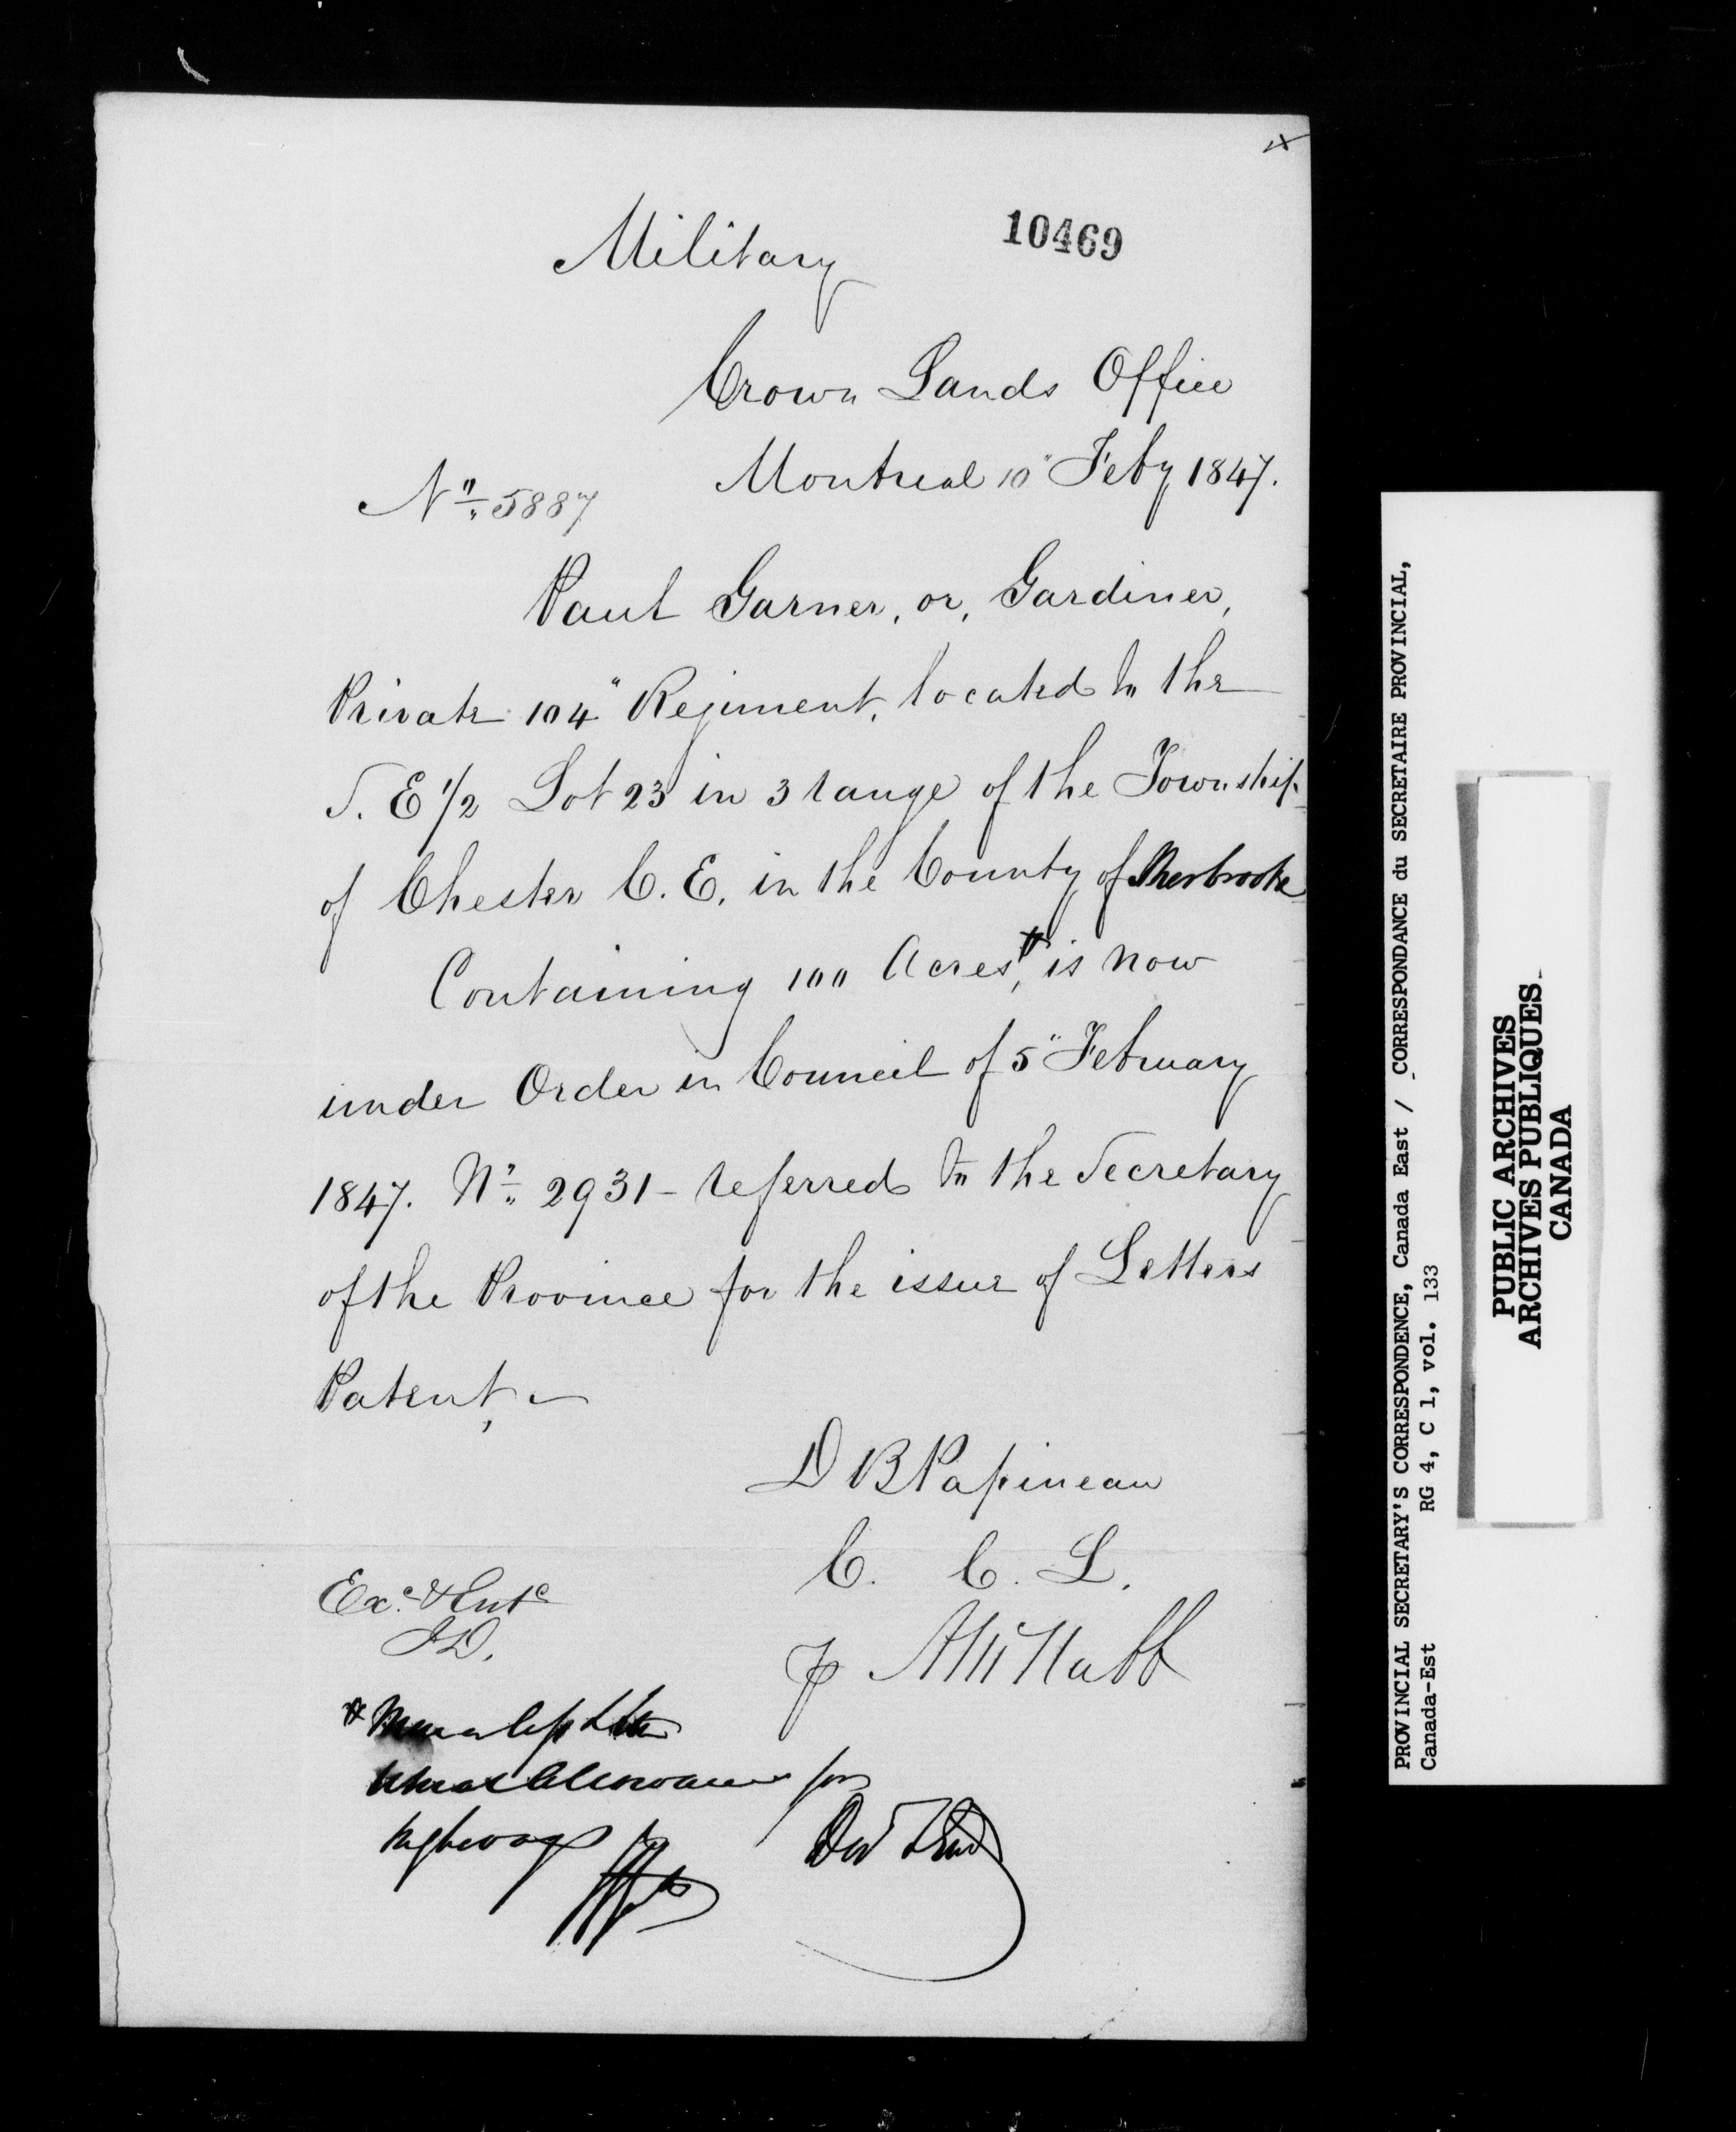 Military
10469
Crown Lands Office
Montreal 10" Feby 1847.
No. 5887
Paul Garner, or, Gardiner,
Private 104" Regiment, located to the
S. E 1/2 Lot 23 in 3 range of the Township
of Chester C. E. in the County of Sherbrooke
Containing 100 Acres,* is now
under Order in Council of 5" February
1847. No. 2931 - referred to the Secretary
of the Province for the issue of Letters
Patent, -
D B Papineau
C. C. L.
Exd & Entd
JD.
* More or less & the
usual allowance for
highways
PROVINCIAL SECRETARY'S CORRESPONDENCE, Canada East / CORRESPONDANCE du SECRETAIRE PROVINCIAL,
Canada-Est
RG 4, C 1, vol. 133
PUBLIC ARCHIVES
ARCHIVES PUBLIQUES
CANADA